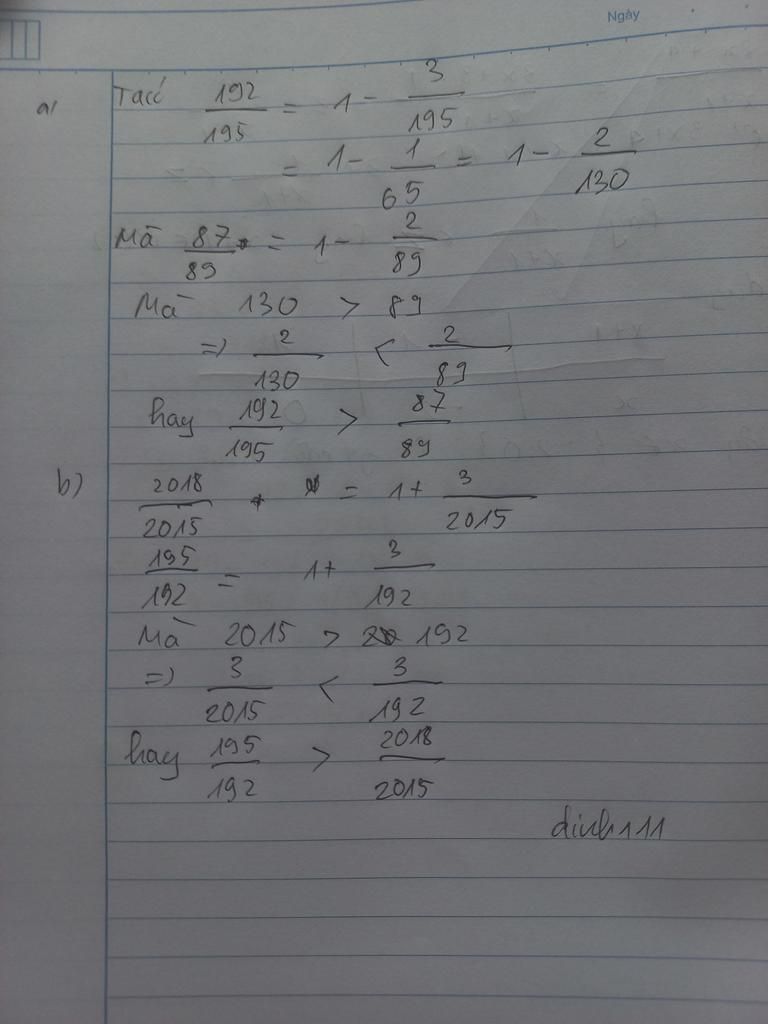 Ngày
a) Ta có 192/195 = 1 - 3/195
= 1 - 1/65 = 1 - 2/130
Mà 87/89 = 1 - 2/89
Mà 130 > 89
=) 2/130 < 2/89
hay 192/195 > 87/89
b) 2018/2015 = 1 + 3/2015
195/192 = 1 + 3/192
Mà 2015 > 192
=) 3/2015 < 3/192
hay 195/192 > 2018/2015
dinh111